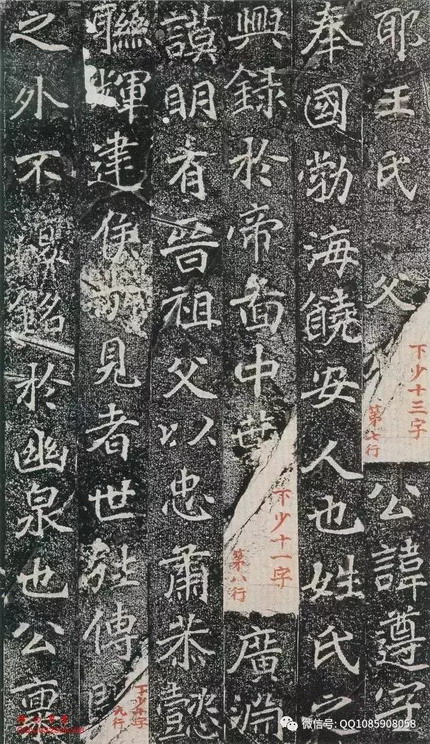 耶王氏 父 公諱遵字
下少十三字
第七行
奉國勃海饒安人也姓氏之
興錄於帝啚中世 廣淵
下少十一字
第八行
謨明有晉祖父以忠肅恭懿
聯輝建侯 見者世 傳
下少十字
九行
之外不 銘於幽泉也公稟
微信号: QQ1085908058